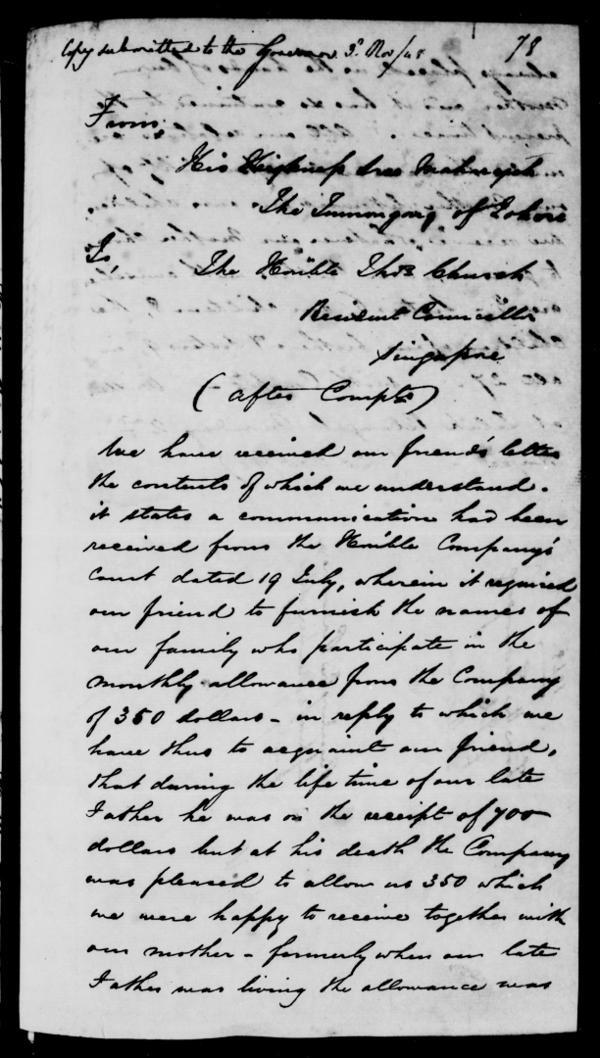 Copy submitted to the Governor 3d. Nov/48
78
From,
His Highness Sree Maharajah
The Tumongong of Johore
To,
The Honble Thos. Church
Resident Councillor
Singapore
(After Compts)
We have received our friend's letter
the contents of which we understand.
it states a communication had been
received from the Honble Company's
Court dated 19 July, wherein it required
our friend to furnish the names of
our family who participate in the
monthly allowance from the Company
of 350 dollars - in reply to which we
have thus to acquaint our friend,
that during the life time of our late
Father he was in the receipt of 700
dollars but at his death the Company
was pleased to allow us 350 which
we were happy to receive together with
our mother - formerly when our late
Father was living the allowance was